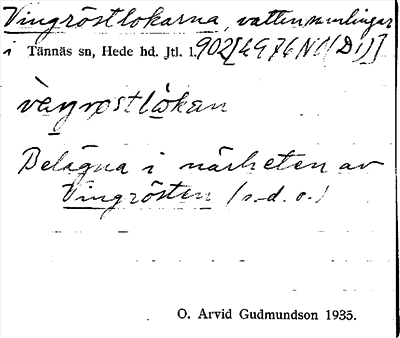 Vingröstlokarna, vattensamlingar
i Tännäs sn, Hede hd. Jtl. l.
vėŋrɔstlòkan
Belägna i närheten av
Vingrösten (s.d.o.)
O. Arvid Gudmundson 1935.